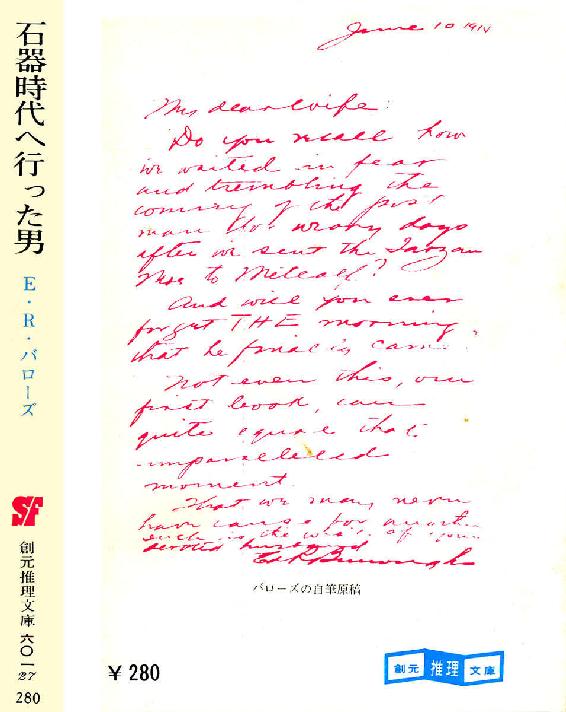 石器時代へ行った男
E・R・バローズ
SF
創元推理文庫 六〇一
27
280
June 10 1914
My dear Wife:
Do you recall how
we waited in fear
and trembling the
coming of the post
man for many days
after we sent the Tarzan
Mss to Metcalf?
And will you ever
forget THE morning
that he finally came.
Not even this, our
first book, can
quite equal that
unparalleled
moment.
That we may never
have cause for another
such is the wish of your
devoted husband
Ed R Burroughs
バローズの自筆原稿
¥ 280
創元 推理 文庫